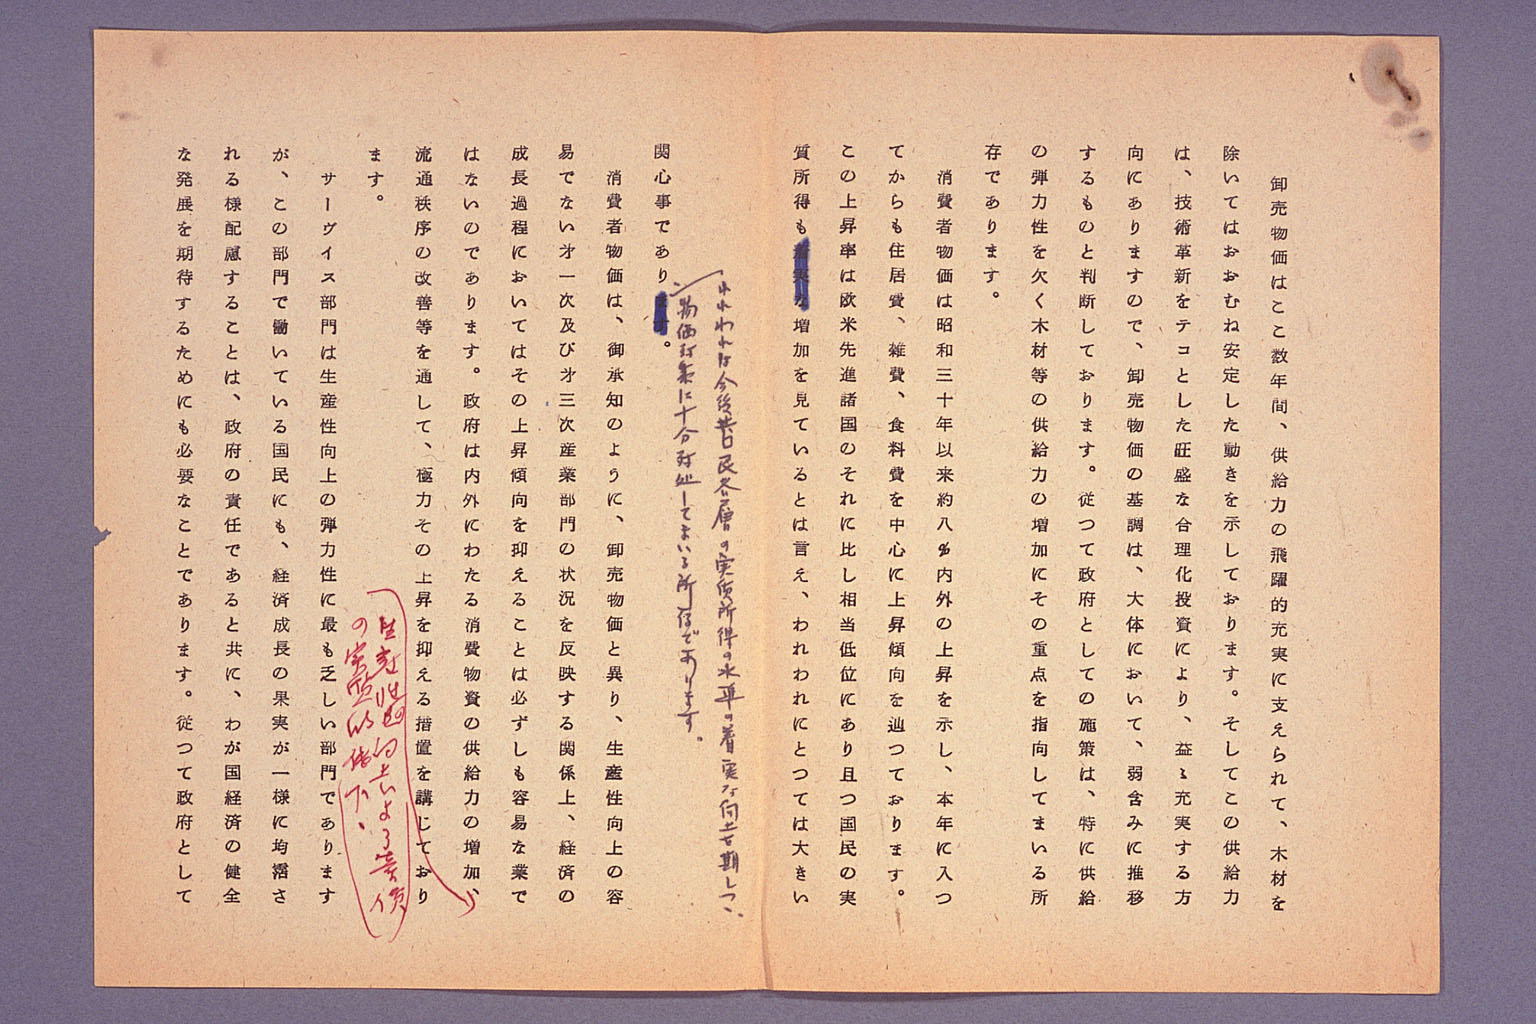 卸売物価はここ数年間、供給力の飛躍的充実に支えられて、木材を
除いてはおおむね安定した動きを示しております。そしてこの供給力
は、技術革新をテコとした旺盛な合理化投資により、益々充実する方
向にありますので、卸売物価の基調は、大体において、弱含みに推移
するものと判断しております。従つて政府としての施策は、特に供給
の弾力性を欠く木材等の供給力の増加にその重点を指向してまいる所
存であります。
消費者物価は昭和三十年以来約八%内外の上昇を示し、本年に入つ
てからも住居費、雑費、食料費を中心に上昇傾向を辿つております。
この上昇率は欧米先進諸国のそれに比し相当低位にあり且つ国民の実
質所得も着実な増加を見ているとは言え、われわれにとつては大きい
われわれは今後共国民各層の実質所得の水準の着実な向上を期しつゝ、
物価対策に十分対処してまいる所存であります。
関心事であります。
消費者物価は、御承知のように、卸売物価と異り、生産性向上の容
易でない才一次及び才三次産業部門の状況を反映する関係上、経済の
成長過程においてはその上昇傾向を抑えることは必ずしも容易な業で
はないのであります。政府は内外にわたる消費物資の供給力の増加、
流通秩序の改善等を通して、極力その上昇を抑える措置を講じており
生産性の向上による
ます。
サーヴイス部門は生産性向上の弾力性に最も乏しい部門であります
が、この部門で働いている国民にも、経済成長の果実が一様に均霑さ
れる様配慮することは、政府の責任であると共に、わが国経済の健全
な発展を期待するためにも必要なことであります。従つて政府として